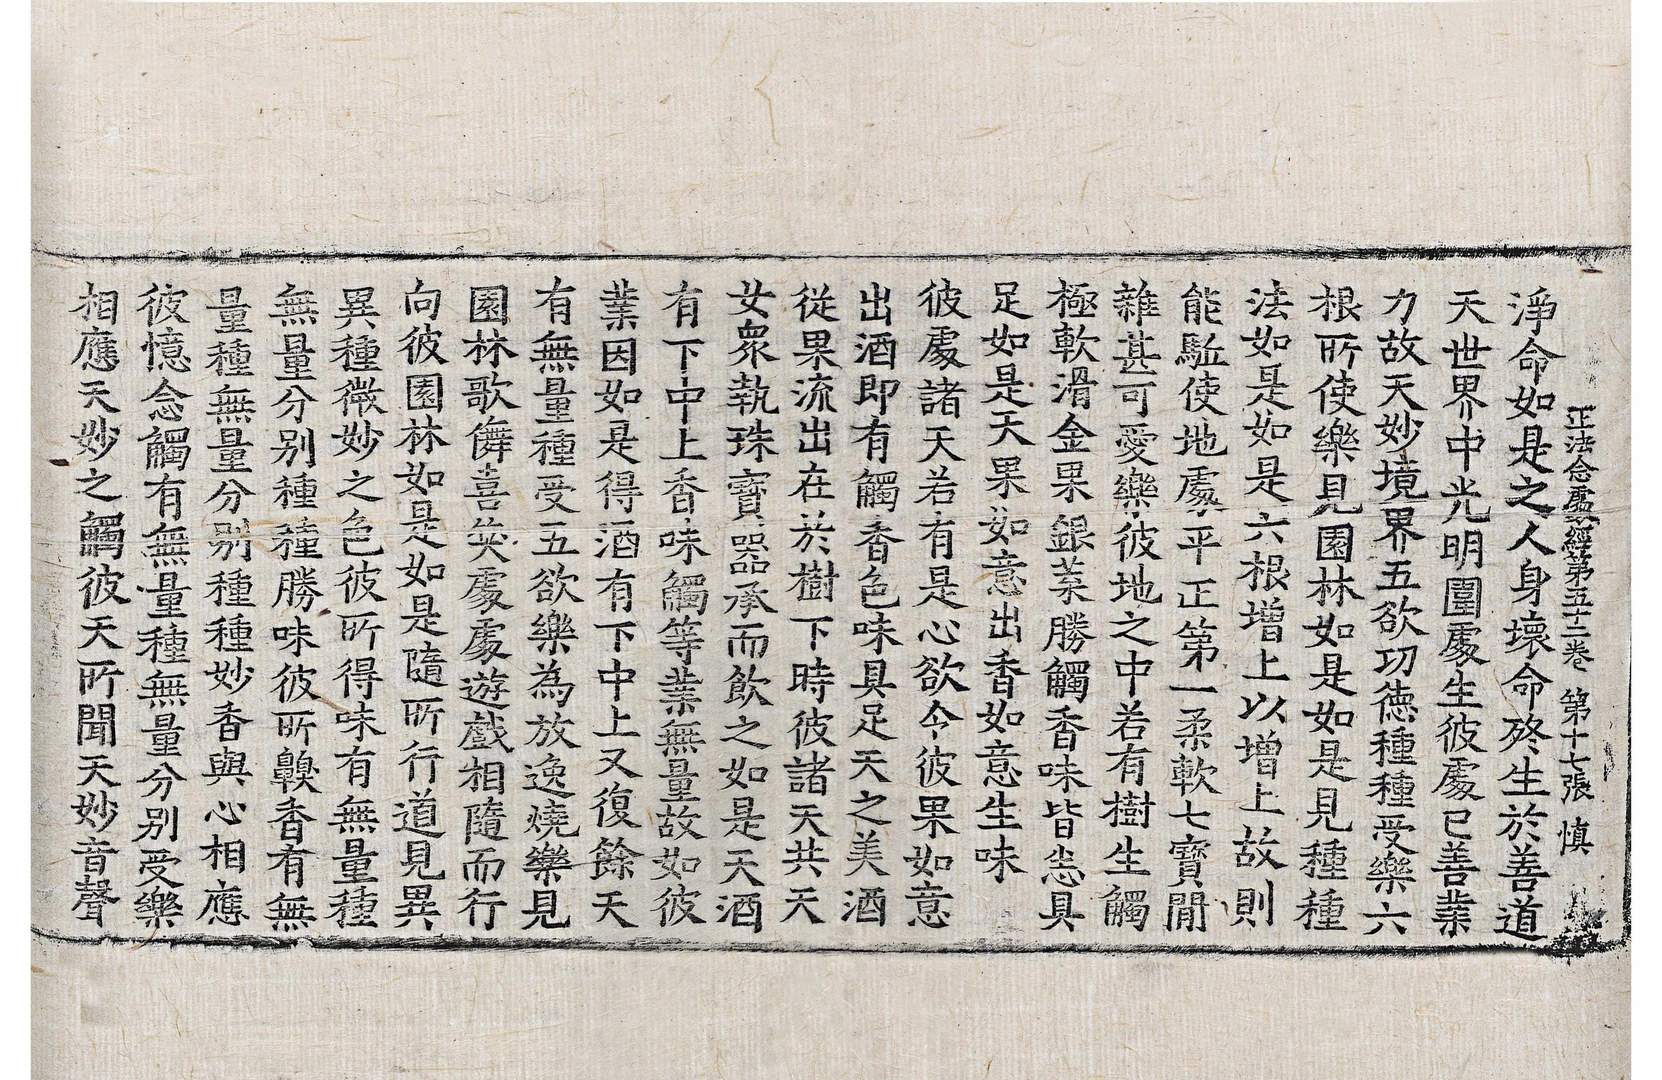 正法念處經第五十二卷 第十七張 慎
淨命如是之人身壞命終生於善道
天世界中光明圍處生彼處已善業
力故天妙境界五欲功德種種受樂六
根所使樂見園林如是如是見種種
法如是如是六根增上以增上故則
能駈使地處平正第一柔軟七寶閒
雜甚可愛樂彼地之中若有樹生觸
極軟滑金果銀葉勝觸香味皆悉具
足如是天果如意出香如意生味
彼處諸天若有是心欲令彼果如意
出酒即有觸香色味具足天之美酒
從果流出在於樹下時彼諸天共天
女衆執珠寶器承而飲之如是天酒
有下中上香味觸等業無量故如彼
業因如是得酒有下中上又復餘天
有無量種受五欲樂為放逸燒樂見
園林歌儛喜笑處處遊戲相隨而行
向彼園林如是如是隨所行道見異
異種微妙之色彼所得味有無量種
無量分別種種勝味彼所齅香有無
量種無量分別種種妙香與心相應
彼憶念觸有無量種無量分別受樂
相應天妙之觸彼天所聞天妙音聲